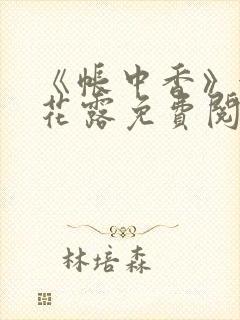 《帐中香》
花露免费阅
林培森